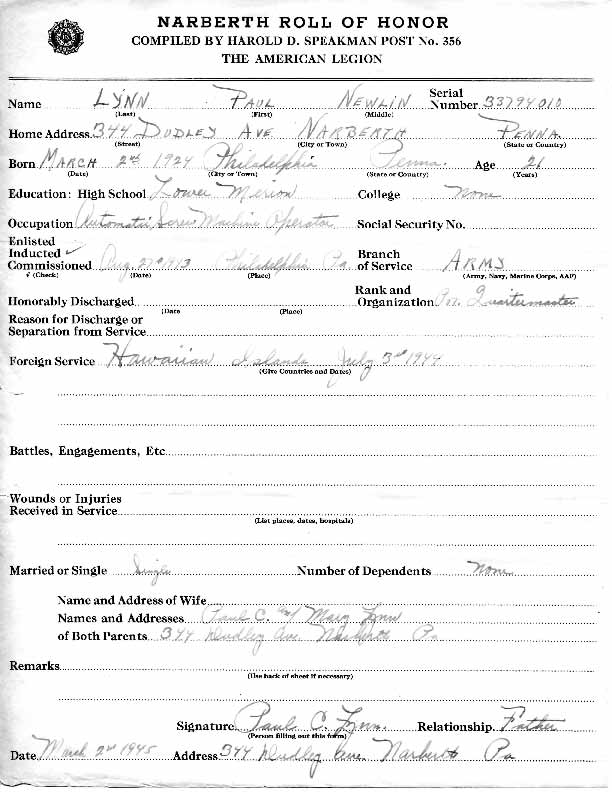 NARBERTH ROLL OF HONOR
COMPILED BY HAROLD D. SPEAKMAN POST No. 356
THE AMERICAN LEGION
Name LYNN PAUL NEWLIN Serial Number 33794010
(Last) (First) (Middle)
Home Address 344 DUDLEY AVE NARBERTH PENNA
(Street) (City or Town) (State or Country)
Born MARCH 2nd 1924 Philadelphia Penna. Age 21
(Date) (City or Town) (State or Country) (Years)
Education: High School Lower Merion College None
Occupation Automatic Screw Machine Operator Social Security No.
Enlisted
Inducted ✓ Branch
Commissioned Aug. 27th Philadelphia Pa. of Service ARMY
✓ (Check) (Date) (Place) (Army, Navy, Marine Corps, AAF)
Honorably Discharged Rank and Organization Pvt. Quartermaster
(Date (Place)
Reason for Discharge or
Separation from Service
Foreign Service Hawaiian Islands July 3rd 1944
(Give Countries and Dates)
Battles, Engagements, Etc
Wounds or Injuries
Received in Service
(List places, dates, hospitals)
Married or Single Single Number of Dependents None
Name and Address of Wife
Names and Addresses Paul C. and Mary Lynn
of Both Parents 344 Dudley Ave. Narberth Pa
Remarks
(Use back of sheet if necessary)
Signature Paul C. Lynn. Relationship Father
(Person filling out this form)
Date March 2nd 1945 Address 344 Dudley Ave. Narberth Pa